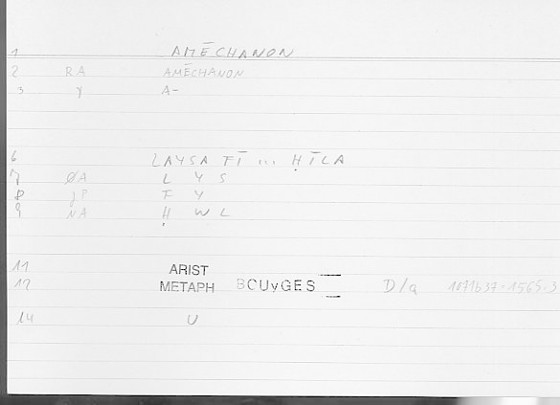 1 AMĒCHANON
2 RA AMĒCHANON
3 γ A-
6 LAYSA FĪ ... ḤĪLA
7 ØA L Y S
8 JP F Y
9 NA Ḥ W L
11 ARIST
12 METAPH BCUVGES D/a 1071b37-1565.3
14 U